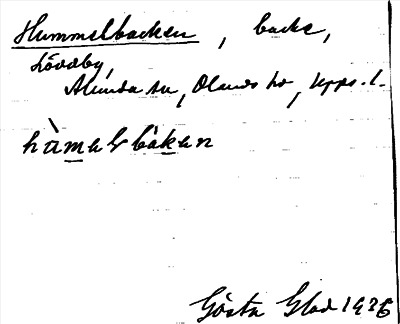 Hummelbacken, backe,
Lövsby,
Alunda sn, Olands hd, Upps. l.
hàmalbàkan
Gösta Glad 1926